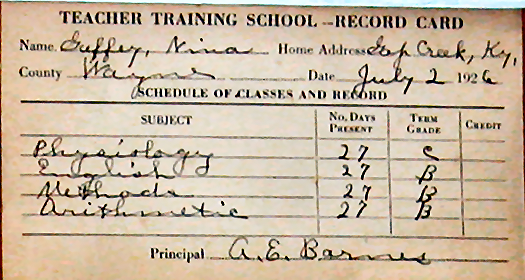 TEACHER TRAINING SCHOOL--RECORD CARD
Name Guffey, Nina Home Address Gap Creek, Ky,
County Wayne Date July 2 1926
SCHEDULE OF CLASSES AND RECORD
SUBJECT No. DAYS PRESENT TERM GRADE CREDIT
Physiology 27 C
English 27 B
Methods 27 B
Arithmetic 27 B
Principal A. E. Barnes